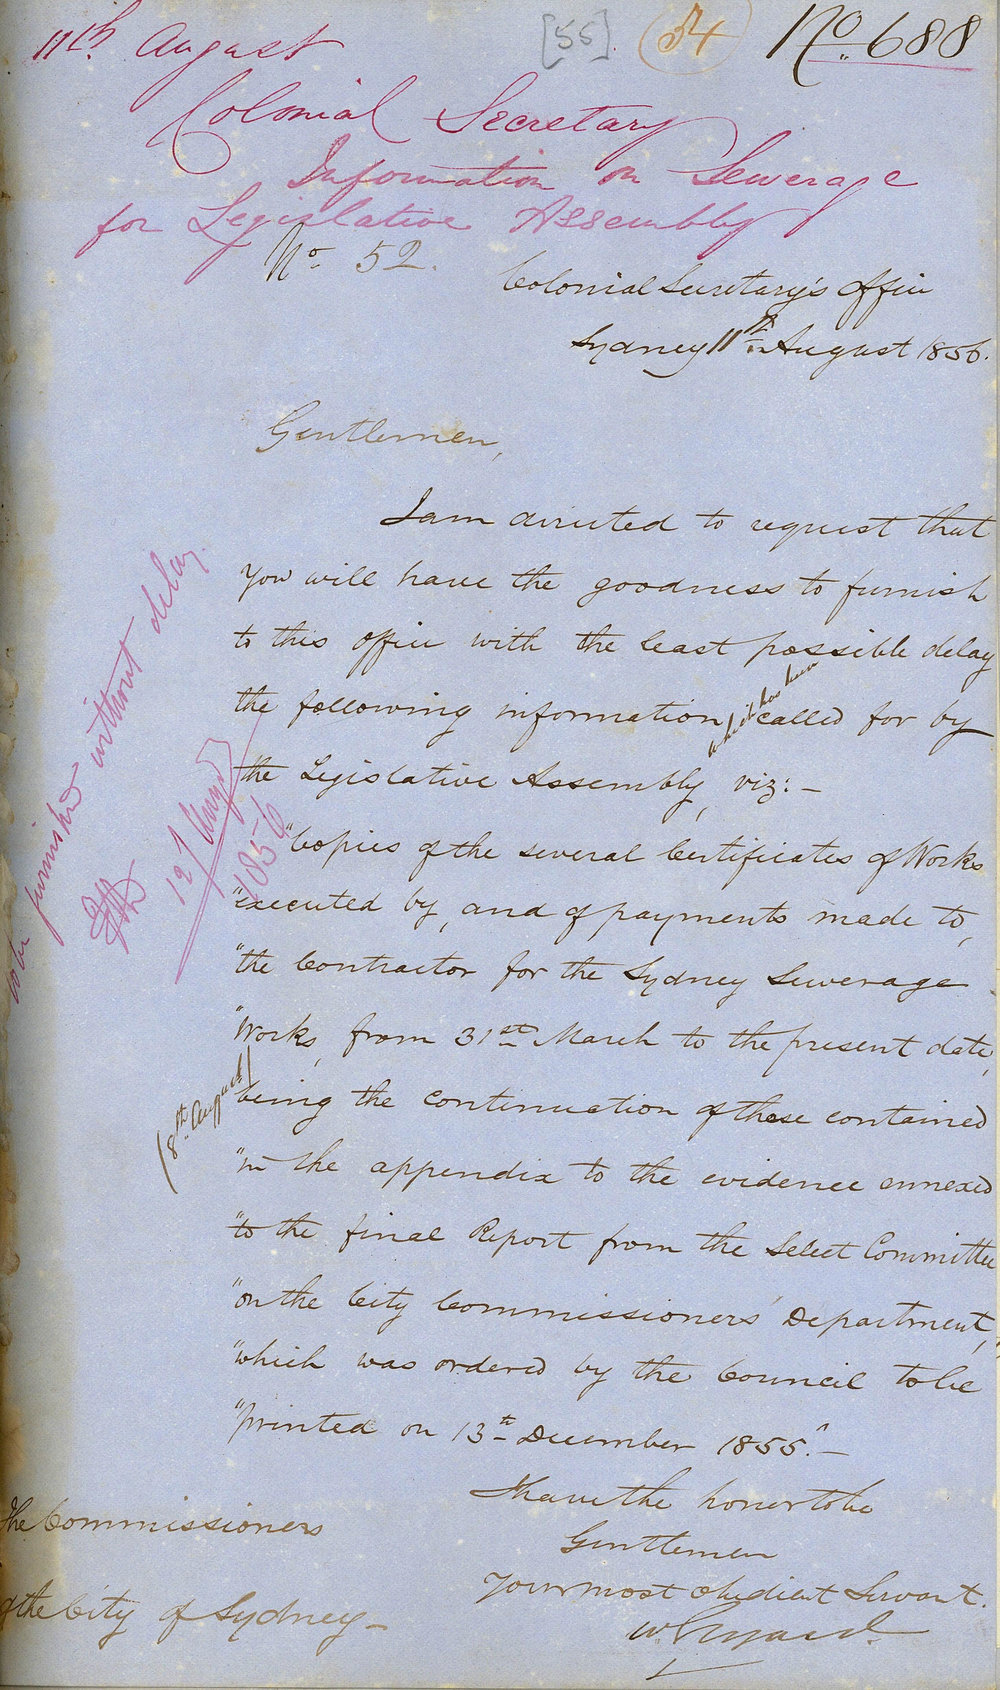 11th August
[55]
54
No. 688
Colonial Secretary
Information on Sewerage
for Legislative Assembly
No. 52.
Colonial Secretary's Office
Sydney 11th August 1856.
Gentlemen,
I am directed to request that
you will have the goodness to furnish
to this office with the least possible delay
the following information, which has been called for by
the Legislative Assembly, viz: —
"Copies of the several Certificates of Works
"executed by, and of payments made to,
"the Contractor for the Sydney Sewerage
"Works, from 31st March to the present date,
(8th August)
"being the continuation of those contained
"in the appendix to the evidence annexed
"to the final Report from the Select Committee
"on the City Commissioners' Department,
"which was ordered by the Council to be
"printed on 13th December 1855." —
I have the honor to be
Gentlemen
Your most obedient Servant.
The Commissioners
of the City of Sydney —
to be furnished without delay.
12/Augt
1856